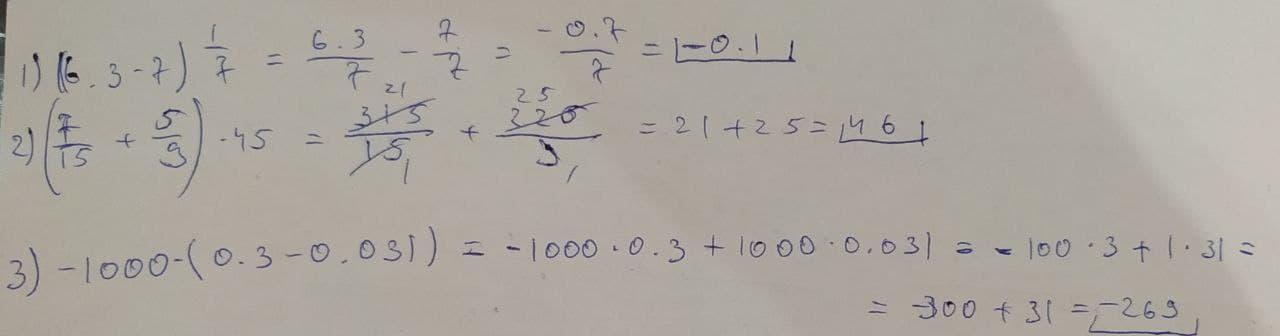 1) (6.3-7) 1/7 = 6.3/7 - 7/7 = -0.7/7 = -0.1
2) (7/15 + 5/9) · 45 = 315/15 21 1 + 225/9 25 1 = 21 + 25 = 46
3) -1000·(0.3-0.031) = -1000·0.3 + 1000·0.031 = -100·3 + 1·31 =
= -300 + 31 = -269